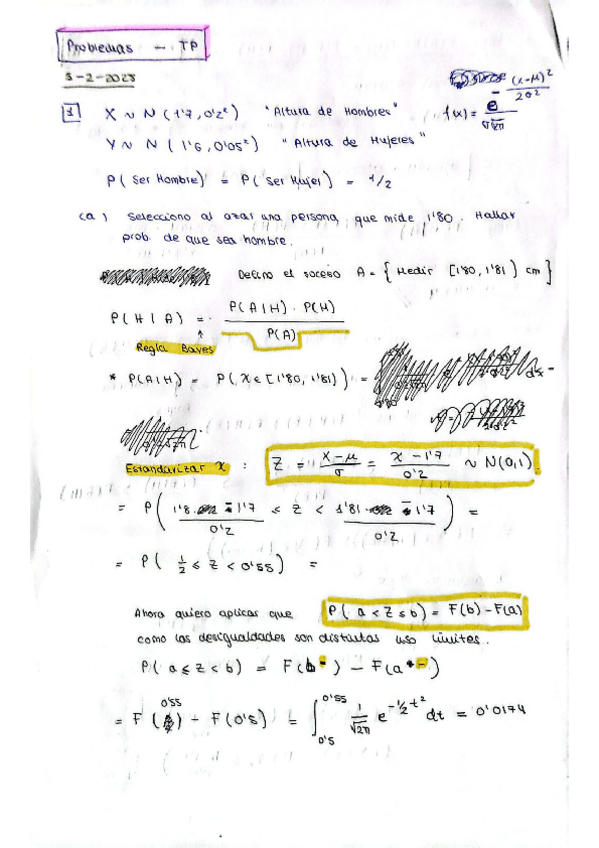 Problemas - TP
3-2-2023
1 X ~ N(1'7, 0'2²) "Altura de Hombres" f(x) = e^{-(x-μ)²/2σ²} / √2π
Y ~ N(1'6, 0'05²) "Altura de Mujeres"
P(Ser Hombre) = P(Ser Mujer) = 1/2
(a) Selecciono al azar una persona, que mide 1'80. Hallar
prob. de que sea hombre.
Defino el suceso A = { Medir [1'80, 1'81) cm }
P(H | A) = P(A | H) · P(H) / P(A)
↑
Regla Bayes
* P(A | H) = P(X ∈ [1'80, 1'81)) =
Estandarizar X : Z = X-μ / σ = X - 1'7 / 0'2 ~ N(0,1)
= P( 1'8 - 1'7 / 0'2 ≤ Z < 1'81 - 1'7 / 0'2 ) =
= P( 1/2 ≤ Z < 0'55 ) =
Ahora quiero aplicar que P( a < Z ≤ b) = F(b) - F(a)
como las desigualdades son distintas uso límites.
P( a ≤ Z < b) = F(b⁻) - F(a⁻)
= F(0'55) - F(0'5) = ∫_{0'5}^{0'55} 1/√2π e^{-1/2 t²} dt = 0'0174